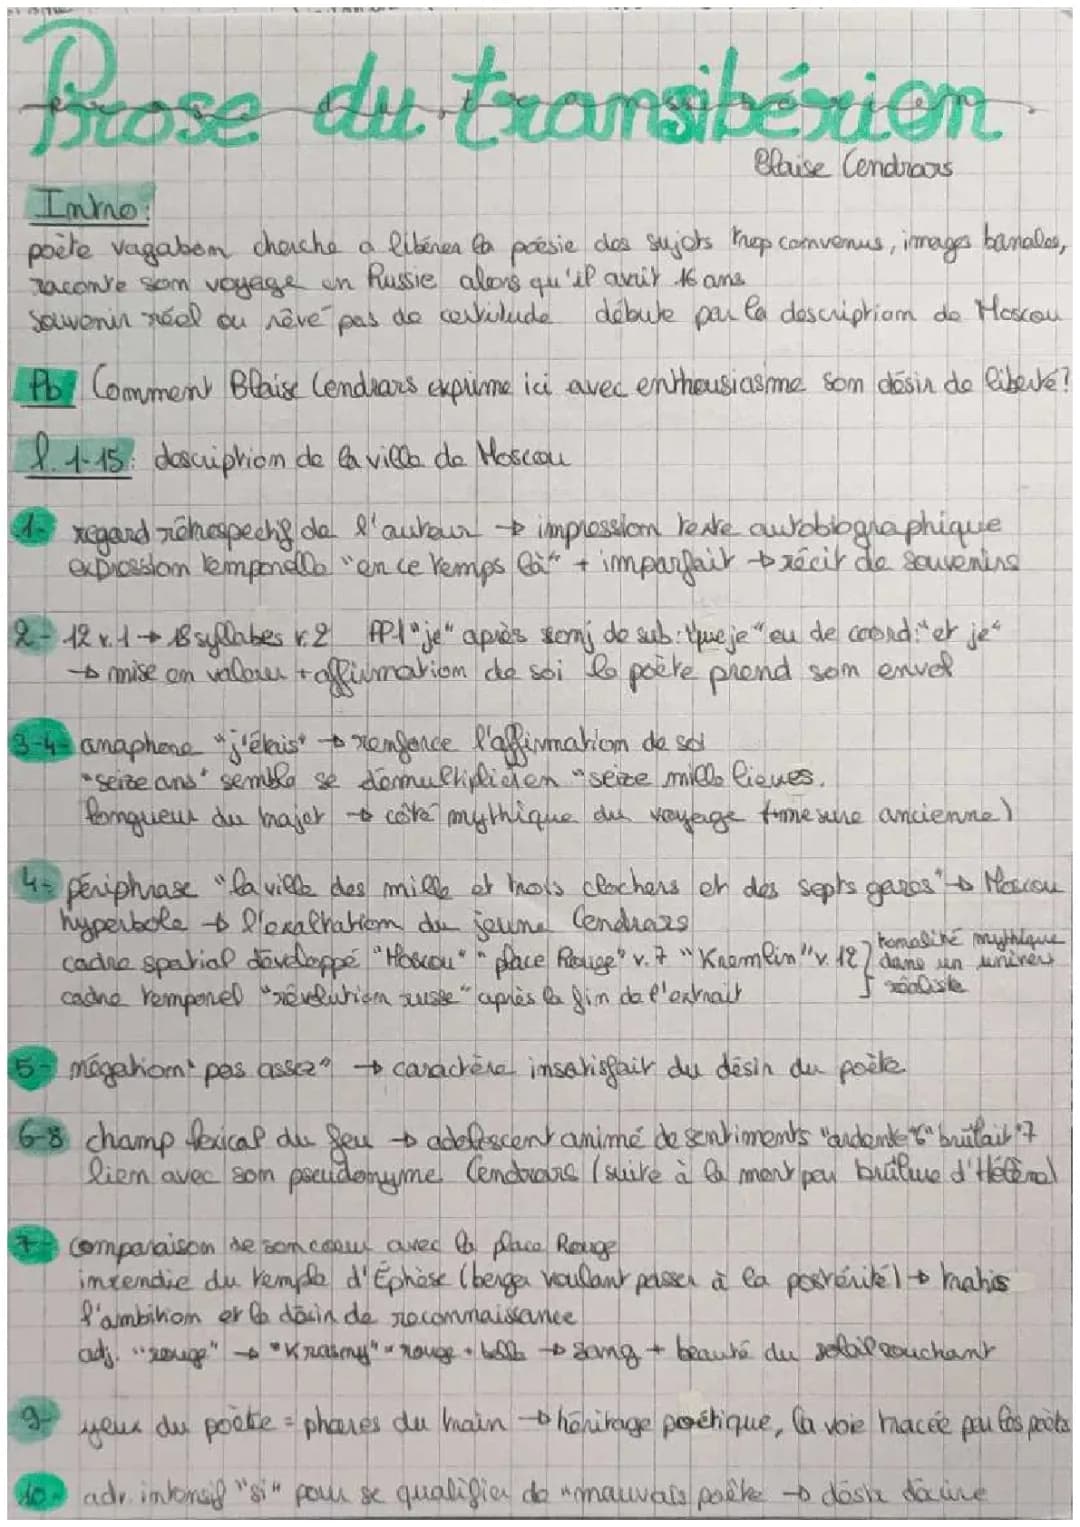 Prose du transibérien
Blaise Cendrars
Intro:
poète vagabon cherche a libérer la poésie des sujets trop convenus, images banales,
raconte son voyage en Russie alors qu'il avait 16 ans
souvenir réel ou rêvé pas de certitude débute par la description de Moscou
Pb Comment Blaise Cendrars exprime ici avec enthousiasme son désir de liberté?
l. 1-15: description de la ville de Moscou
1- regard rétrospectif de l'auteur → impression texte autobiographique
expression temporelle "en ce temps là" + imparfait → récit de souvenirs
2- 12 v.1 → 18 syllabes v.2 PP1 "je" après conj de sub: "que je" eu de coord: "et je"
→ mise en valeur + affirmation de soi le poète prend son envol
3-4- anaphore "j'étais" → renforce l'affirmation de soi
"seize ans" semble se démultiplier en "seize mille lieues.
longueur du trajet → côté mythique du voyage (+mesure ancienne)
4- périphrase "la ville des mille et trois clochers et des septs gares" → Moscou
hyperbole → l'exaltation du jeune Cendrars
cadre spatial développé "Moscou" "place Rouge" v.7 "Kremlin" v.12 } tonalité mythique dans un univers réaliste
cadre temporel "révolution russe" après la fin de l'extrait
5- négation "pas assez" → caractère insatisfait du désir du poète
6-8 champ lexical du feu → adolescent animé de sentiments "ardente"6 "brûlait"7
lien avec son pseudonyme Cendrars (suite à la mort par brûlure d'Hélène)
7- comparaison de son coeur avec la place Rouge
incendie du temple d'Éphèse (berger voulant passer à la postérité) → trahis
l'ambition et le désir de reconnaissance
adj. "rouge" → "Krasmy" = rouge + belle → sang + beauté du soleil couchant
9- yeux du poète = phares du train → héritage poétique, la voie tracée par les poètes
10- adv. intensif "si" pour se qualifier de "mauvais poète → désir d'écrire